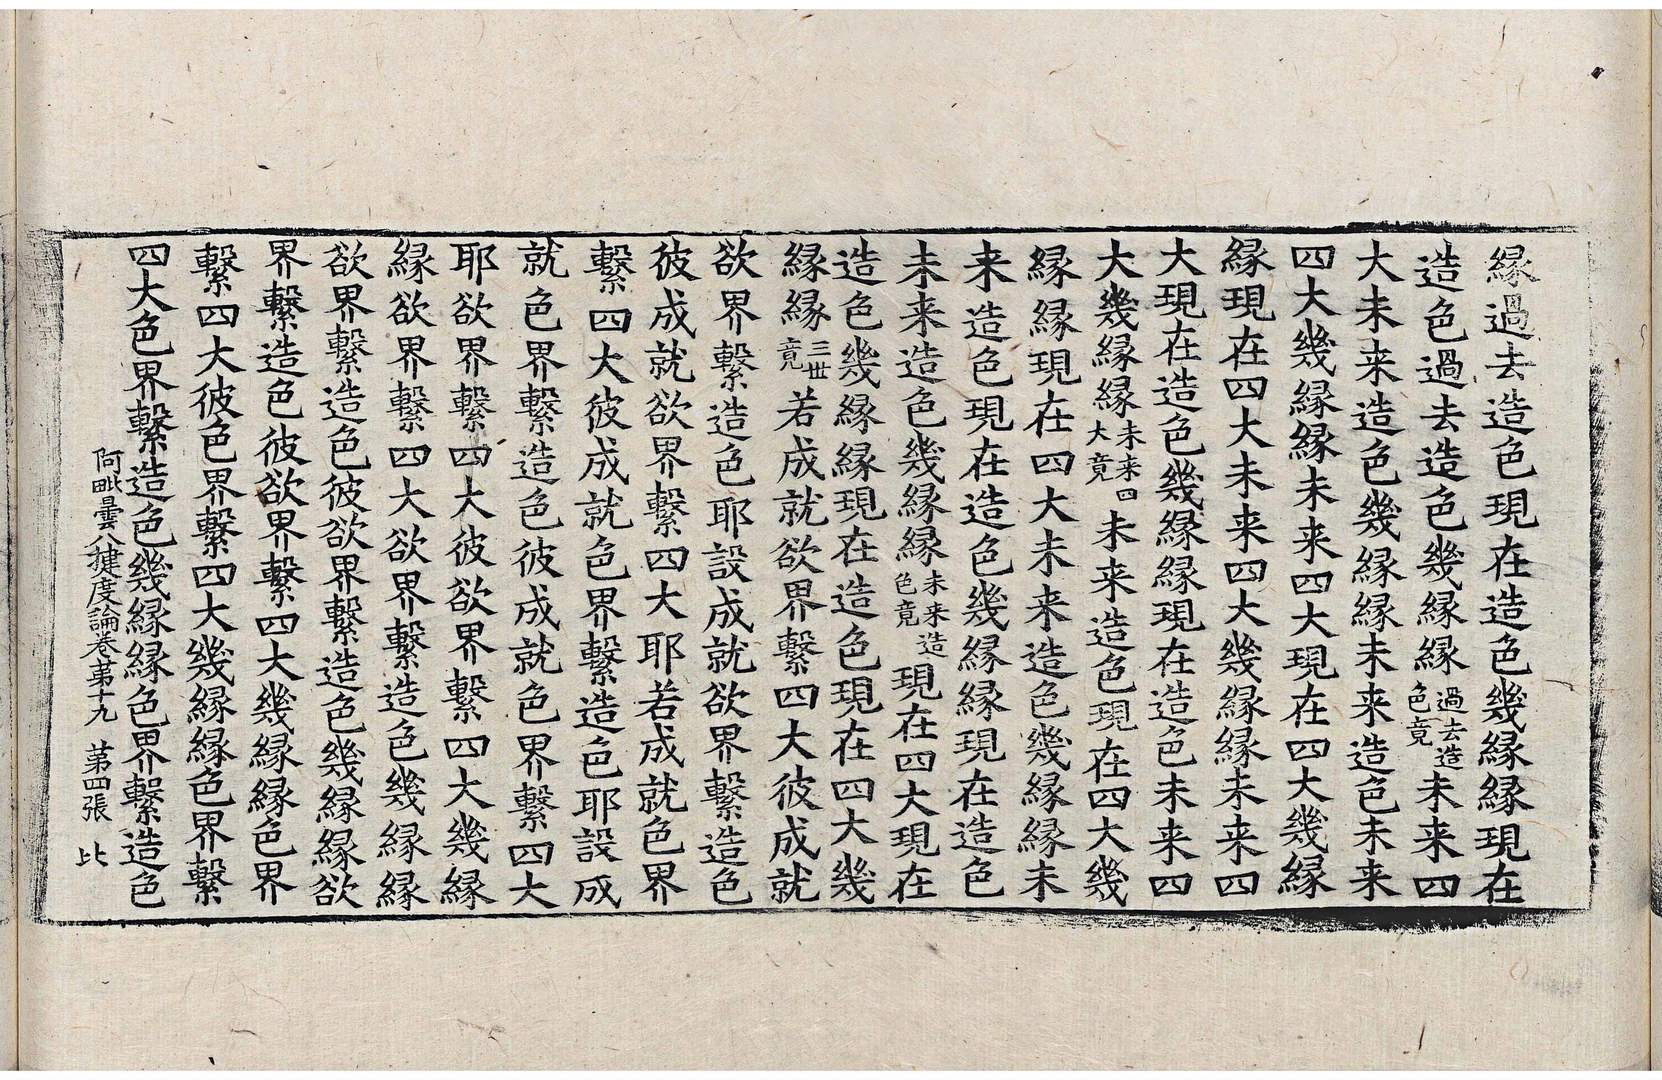 縁過去造色現在造色幾縁縁現在
造色過去造色幾縁縁過去造色竟未来四
大未来造色幾縁縁未来造色未来
四大幾縁縁未来四大現在四大幾縁
縁現在四大未来四大幾縁縁未来四
大現在造色幾縁縁現在造色未来四
大幾縁縁未来四大竟未来造色現在四大幾
縁縁現在四大未来造色幾縁縁未
来造色現在造色幾縁縁現在造色
未来造色幾縁縁未来造色竟現在四大現在
造色幾縁縁現在造色現在四大幾
縁縁三世竟若成就欲界繫四大彼成就
欲界繫造色耶設成就欲界繫造色
彼成就欲界繫四大耶若成就色界
繫四大彼成就色界繫造色耶設成
就色界繫造色彼成就色界繫四大
耶欲界繫四大彼欲界繫四大幾縁
縁欲界繫四大欲界繫造色幾縁縁
欲界繫造色彼欲界繫造色幾縁縁欲
界繫造色彼欲界繫四大幾縁縁色界
繫四大彼色界繫四大幾縁縁色界繫
四大色界繫造色幾縁縁色界繫造色
阿毗曇八揵度論卷苐十九　第四張　比